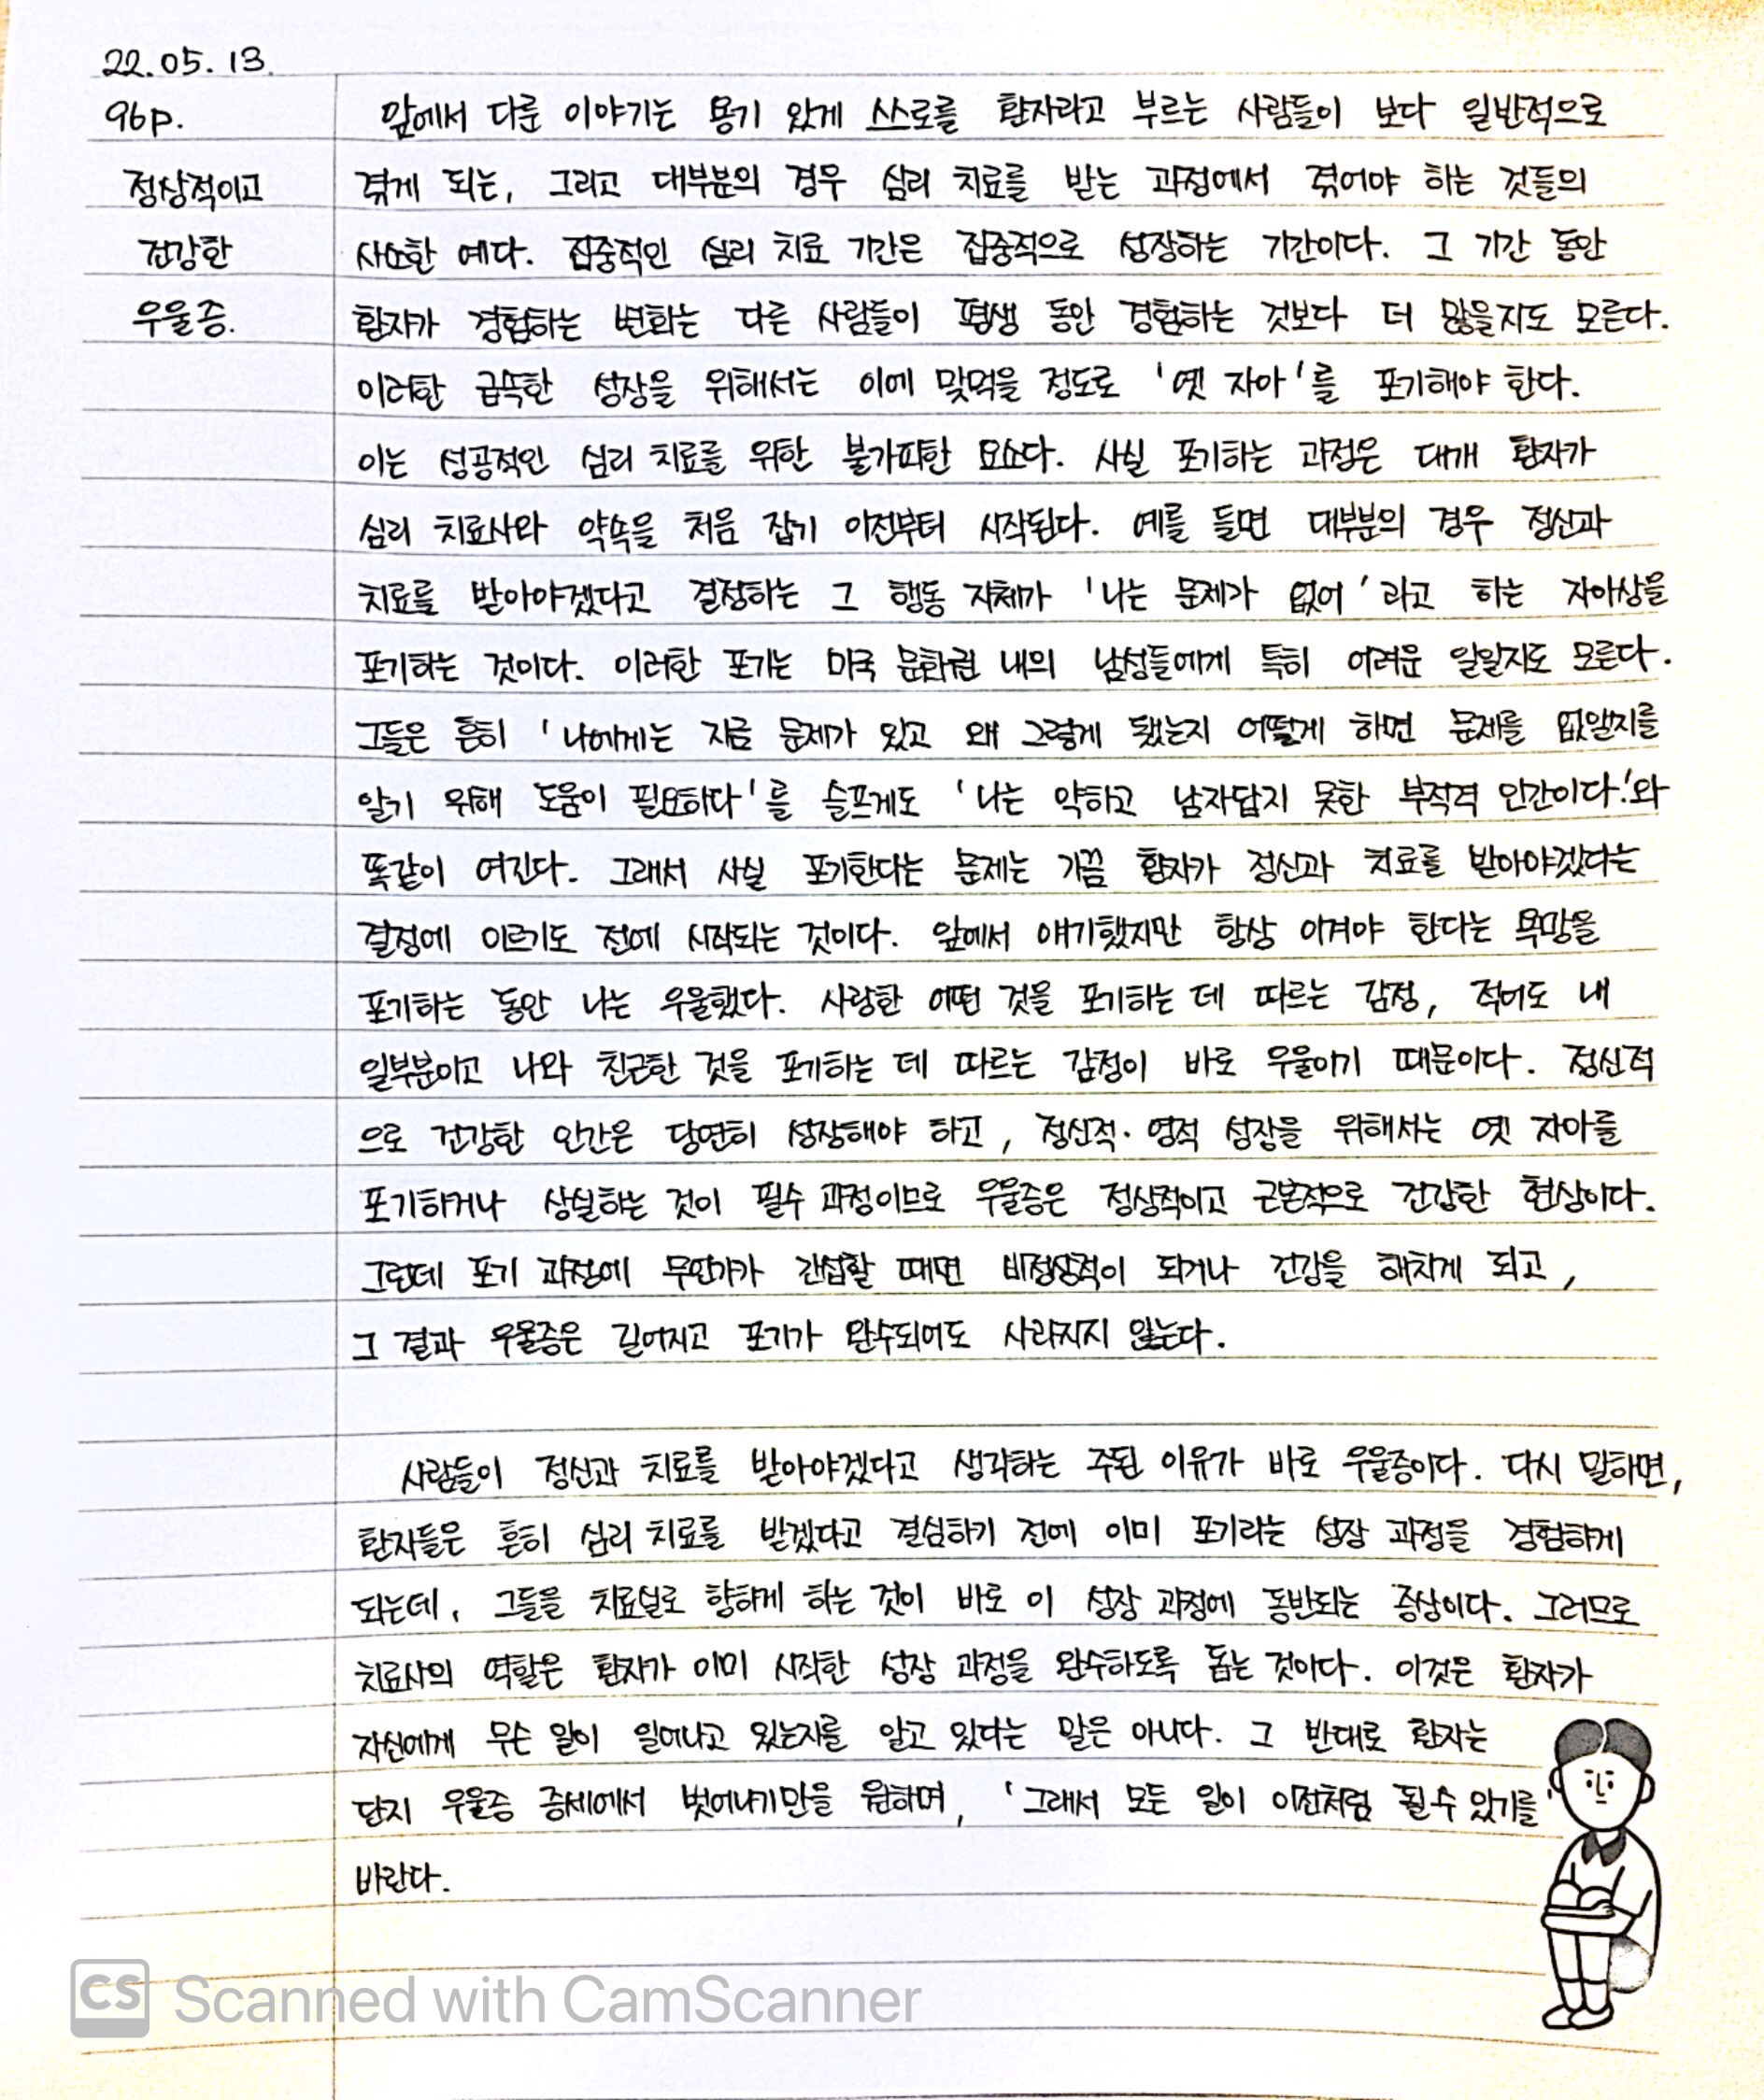 22.05.13.
96p.
정상적이고
건강한
우울증.
앞에서 다룬 이야기는 용기 있게 스스로를 환자라고 부르는 사람들이 보다 일반적으로
겪게 되는, 그리고 대부분의 경우 심리 치료를 받는 과정에서 겪어야 하는 것들의
사소한 예다. 집중적인 심리 치료 기간은 집중적으로 성장하는 기간이다. 그 기간 동안
환자가 경험하는 변화는 다른 사람들이 평생 동안 경험하는 것보다 더 많을지도 모른다.
이러한 급속한 성장을 위해서는 이에 맞먹을 정도로 '옛 자아'를 포기해야 한다.
이는 성공적인 심리 치료를 위한 불가피한 요소다. 사실 포기하는 과정은 대개 환자가
심리 치료사와 약속을 처음 잡기 이전부터 시작된다. 예를 들면 대부분의 경우 정신과
치료를 받아야겠다고 결정하는 그 행동 자체가 '나는 문제가 없어'라고 하는 자아상을
포기하는 것이다. 이러한 포기는 미국 문화권 내의 남성들에게 특히 어려운 일일지도 모른다.
그들은 흔히 '나에게는 지금 문제가 있고 왜 그렇게 됐는지 어떻게 하면 문제를 없앨지를
알기 위해 도움이 필요하다'를 슬프게도 '나는 약하고 남자답지 못한 부적격 인간이다.'와
똑같이 여긴다. 그래서 사실 포기한다는 문제는 가끔 환자가 정신과 치료를 받아야겠다는
결정에 이르기도 전에 시작되는 것이다. 앞에서 얘기했지만 항상 이겨야 한다는 욕망을
포기하는 동안 나는 우울했다. 사랑한 어떤 것을 포기하는 데 따르는 감정, 적어도 내
일부분이고 나와 친근한 것을 포기하는 데 따르는 감정이 바로 우울이기 때문이다. 정신적
으로 건강한 인간은 당연히 성장해야 하고, 정신적·영적 성장을 위해서는 옛 자아를
포기하거나 상실하는 것이 필수 과정이므로 우울증은 정상적이고 근본적으로 건강한 현상이다.
그런데 포기 과정에 무언가가 간섭할 때면 비정상적이 되거나 건강을 해치게 되고,
그 결과 우울증은 길어지고 포기가 완수되어도 사라지지 않는다.
사람들이 정신과 치료를 받아야겠다고 생각하는 주된 이유가 바로 우울증이다. 다시 말하면,
환자들은 흔히 심리 치료를 받겠다고 결심하기 전에 이미 포기라는 성장 과정을 경험하게
되는데, 그들을 치료실로 향하게 하는 것이 바로 이 성장 과정에 동반되는 증상이다. 그러므로
치료사의 역할은 환자가 이미 시작한 성장 과정을 완수하도록 돕는 것이다. 이것은 환자가
자신에게 무슨 일이 일어나고 있는지를 알고 있다는 말은 아니다. 그 반대로 환자는
단지 우울증 증세에서 벗어나기만을 원하며, '그래서 모든 일이 이전처럼 될 수 있기를'
바란다.
CS Scanned with CamScanner